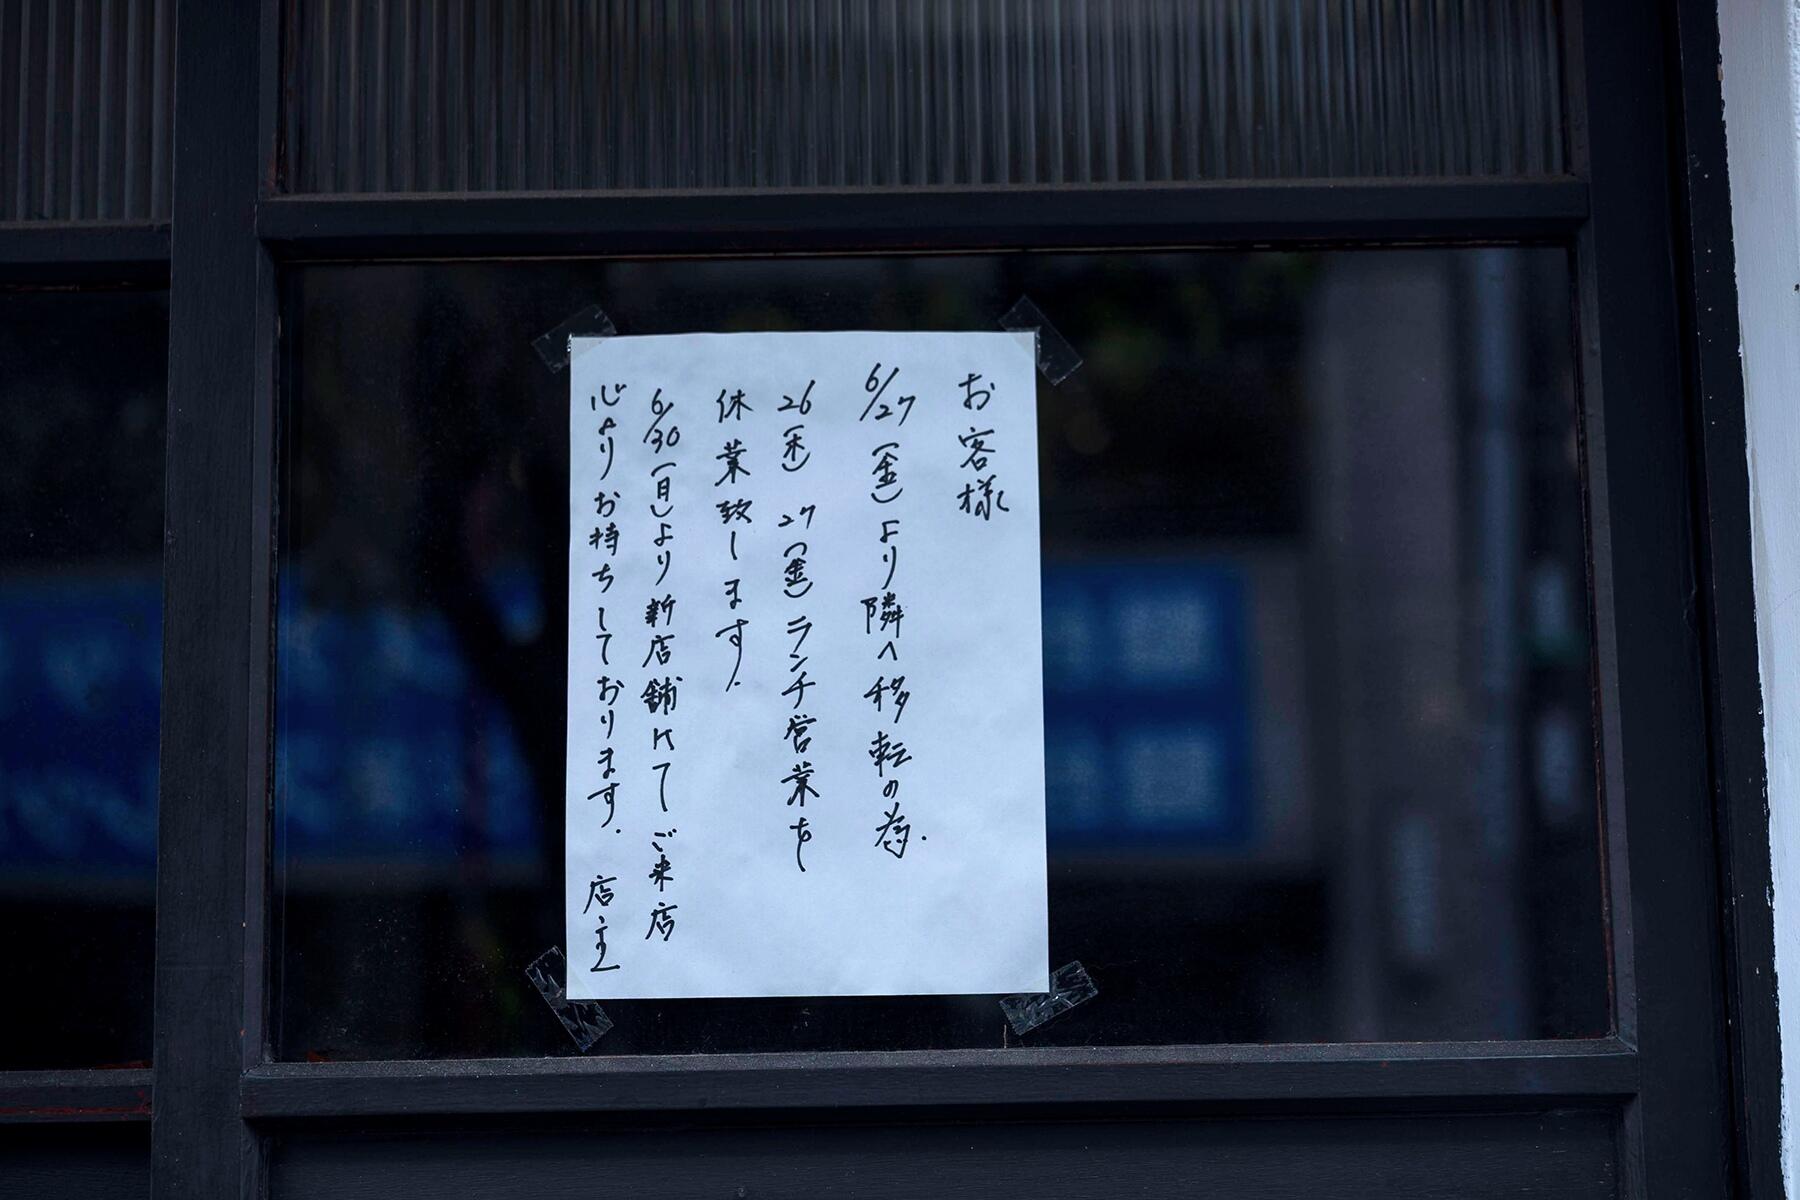 お客様
6/27(金)より隣へ移転の為.
26(木) 27(金)ランチ営業を
休業致します.
6/30(日)より新店舗にてご来店
心よりお待ちしております. 店主